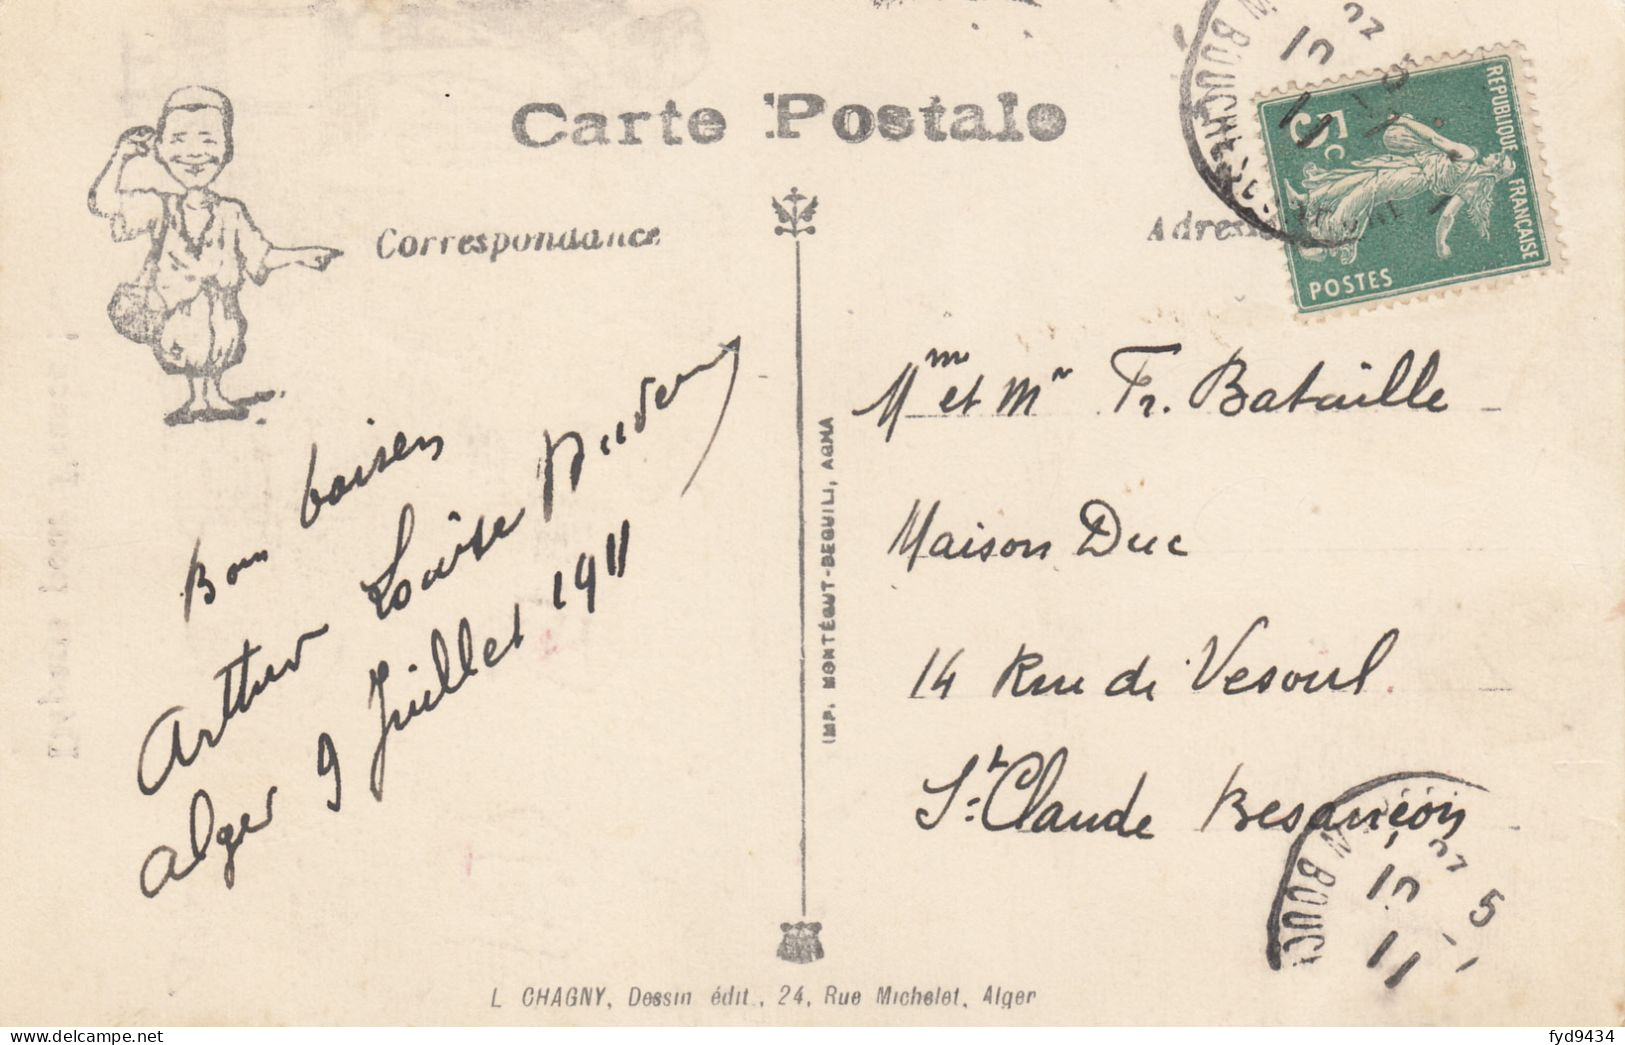 Carte Postale
Correspondance
Bons baisers
Arthur Louise
Alger 9 Juillet 1911
IMP. MONTÉGUT-DEGUILI, AGHA
L CHAGNY, Dessin édit., 24, Rue Michelet, Alger
RÉPUBLIQUE FRANÇAISE
5c
POSTES
Mme et Mr Fr. Bataille
Maison Duc
14 Rue de Vesoul
St Claude Besançon
11
5
11
fyd9434